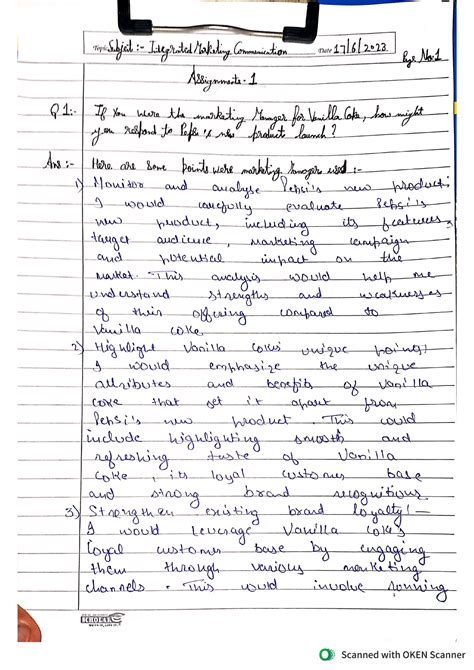 Topic Subject :- Integrated Marketing Communication Date 17/6/2023
Page No:1
Assignment - 1
Q1:- If You were the marketing Manager for Vanilla Coke, how might
you respond to Pepsi's new product launch?
Ans:- Here are some points were marketing Manager used :-
1) Monitor and analyse Pepsi's new product:
I would carefully evaluate Pepsi's
new product, including its features,
target audience, marketing campaign
and potential impact on the
market. This analysis would help me
understand strengths and weaknesses
of their offering compared to
Vanilla Coke.
2) Highlight Vanilla Cokes unique points:
I would emphasize the unique
attributes and benefits of Vanilla
Coke that set it apart from
Pepsi's new product. This could
include highlighting smooth and
refreshing taste of Vanilla
Coke, its loyal customer base
and strong brand recognitions.
3) Strengthen existing brand loyalty:-
I would Leverage Vanilla Coke's
Loyal customer base by engaging
them through various marketing
channels. This would involve running
SCHOLAR
Scanned with OKEN Scanner